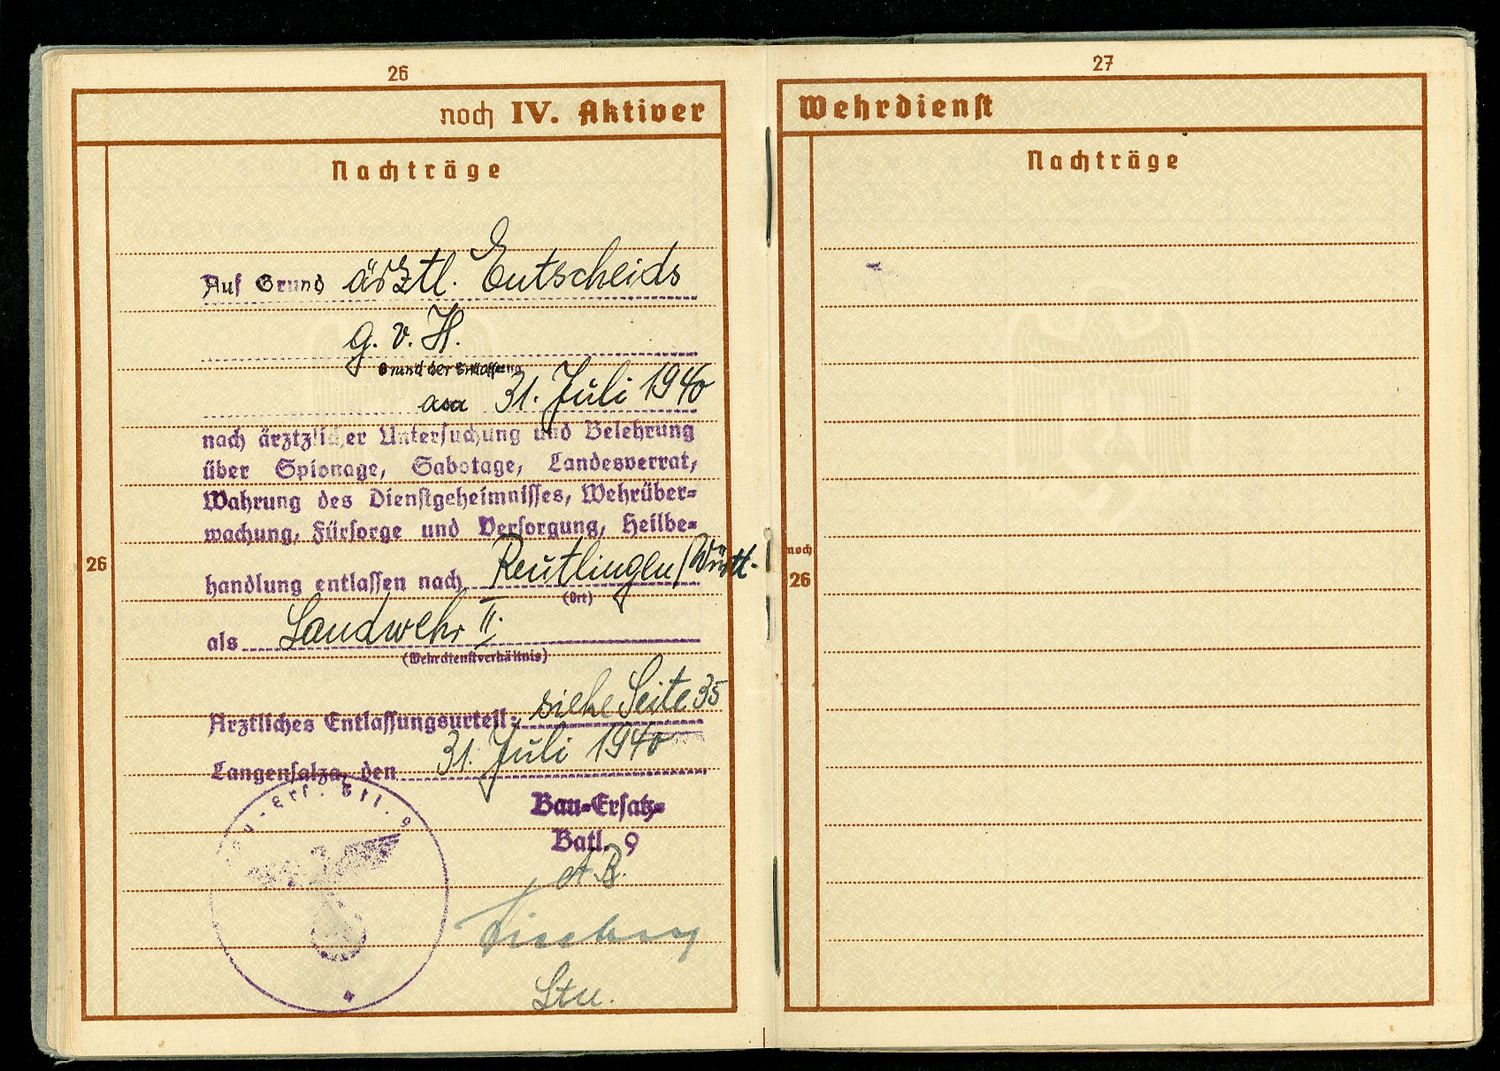 26
noch IV. Aktiver
Nachträge
Auf Grund ärztl. Entscheids
g. v. H.
Grund der Entlassung
am 31. Juli 1940
nach ärztzlicher Untersuchung und Belehrung
über Spionage, Sabotage, Landesverrat,
Wahrung des Dienstgeheimnisses, Wehrüber-
wachung, Fürsorge und Versorgung, Heilbe-
26
handlung entlassen nach Reutlingen/Württ.
(Ort)
als Landwehr II.
(Wehrdienstverhältnis)
Ärztliches Entlassungsurteil: siehe Seite 35
Langensalza, den 31. Juli 1940
Bau-Ers. Btl. 9
Bau-Ersatz-
Batl. 9
A.B.
27
Wehrdienst
Nachträge
noch
26